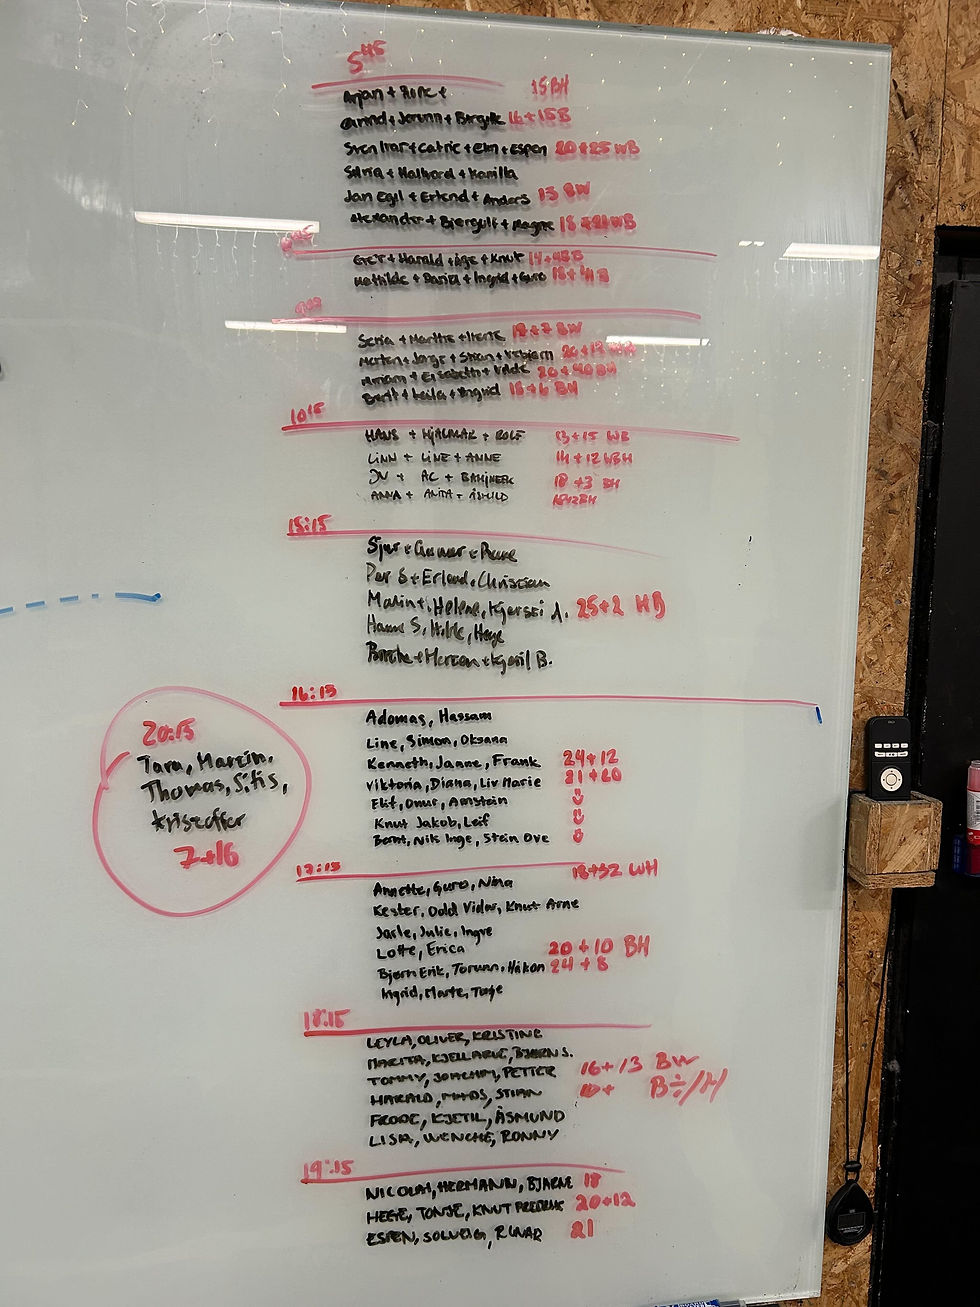 5⁴⁵
Arjan + Rune + 15 BH
Øivind + Jorunn + Birgitte 16+15B
Svein Ivar + Catric + Elin + Espen 20+25 WB
Silvia + Hallvard + Kamilla
Jan Egil + Erlend + Anders 13 BW
Alexander + Bjergulf + Magne 18+21WB
Geir + Harald + Åge + Knut 14+48B
Mathilde + Daria + Ingrid + Guro
900
Seria + Marthe + 18+7 BW
Morten + Jorge + Stian + Vebjørn
Miriam + Elisabeth + Vilde 20+40 BH
Berit + Laila + Ingrid 18+6 BH
10¹⁵
HANS + HJALMAR + ROLF 13+15 WB
LINN + LINE + ANNE 14+12 WBH
JV + AC + 18+3 BH
ANNA + ANITA + ÅSHILD
15:15
Sjur + Gunnar + Rune
Per S + Erlend, Christian
Malin +, Helene, Kjersti A. 25+2 HB
Hanne S, Hilde, Hege
Bente + Merson + Kjetil B.
16:15
Adomas, Hassam
Line, Simon, Oksana
Kenneth, Janne, Frank 24+12
Viktoria, Diana, Liv Marie 21+60
Elif, Onur, Arnstein
Knut Jakob, Leif
Bernt, Nils Inge, Stein Ove
20:15
Tara, Martin,
Thomas, Sitis,
Kristoffer
7+16
17:15
18+32 WH
Annette, Guro, Nina
Kester, Odd Vidar, Knut Arne
Jarle, Julie, Ingve
Lotte, Erica 20+10 BH
Bjørn Erik, Torunn, Håkon 24+8
Ingrid, Marte, Terje
18:15
LEYLA, OLIVER, KRISTINE
MARITA, KJELLARVE, BJØRN S.
TOMMY, JOACHIM, PETTER 16+13 BW
HARALD, MADS, STIAN 10+ B÷/H
FRODE, KJETIL, ÅSMUND
LISA, WENCHE, RONNY
19:15
NICOLAI, HERMANN, BJARNE 18
HEGE, TONJE, KNUT FREDRIK 20+12
ESPEN, SOLVEIG, RUNAR 21